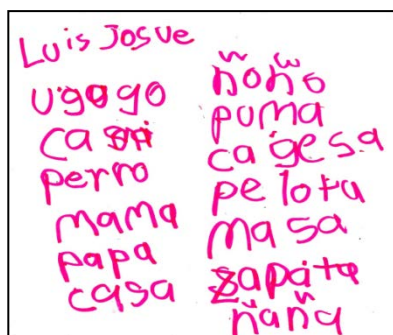 Luis Josue
ugogo
perro
mama
papa
casa
ñoño
puma
cagesa
pelota
masa
ñaña